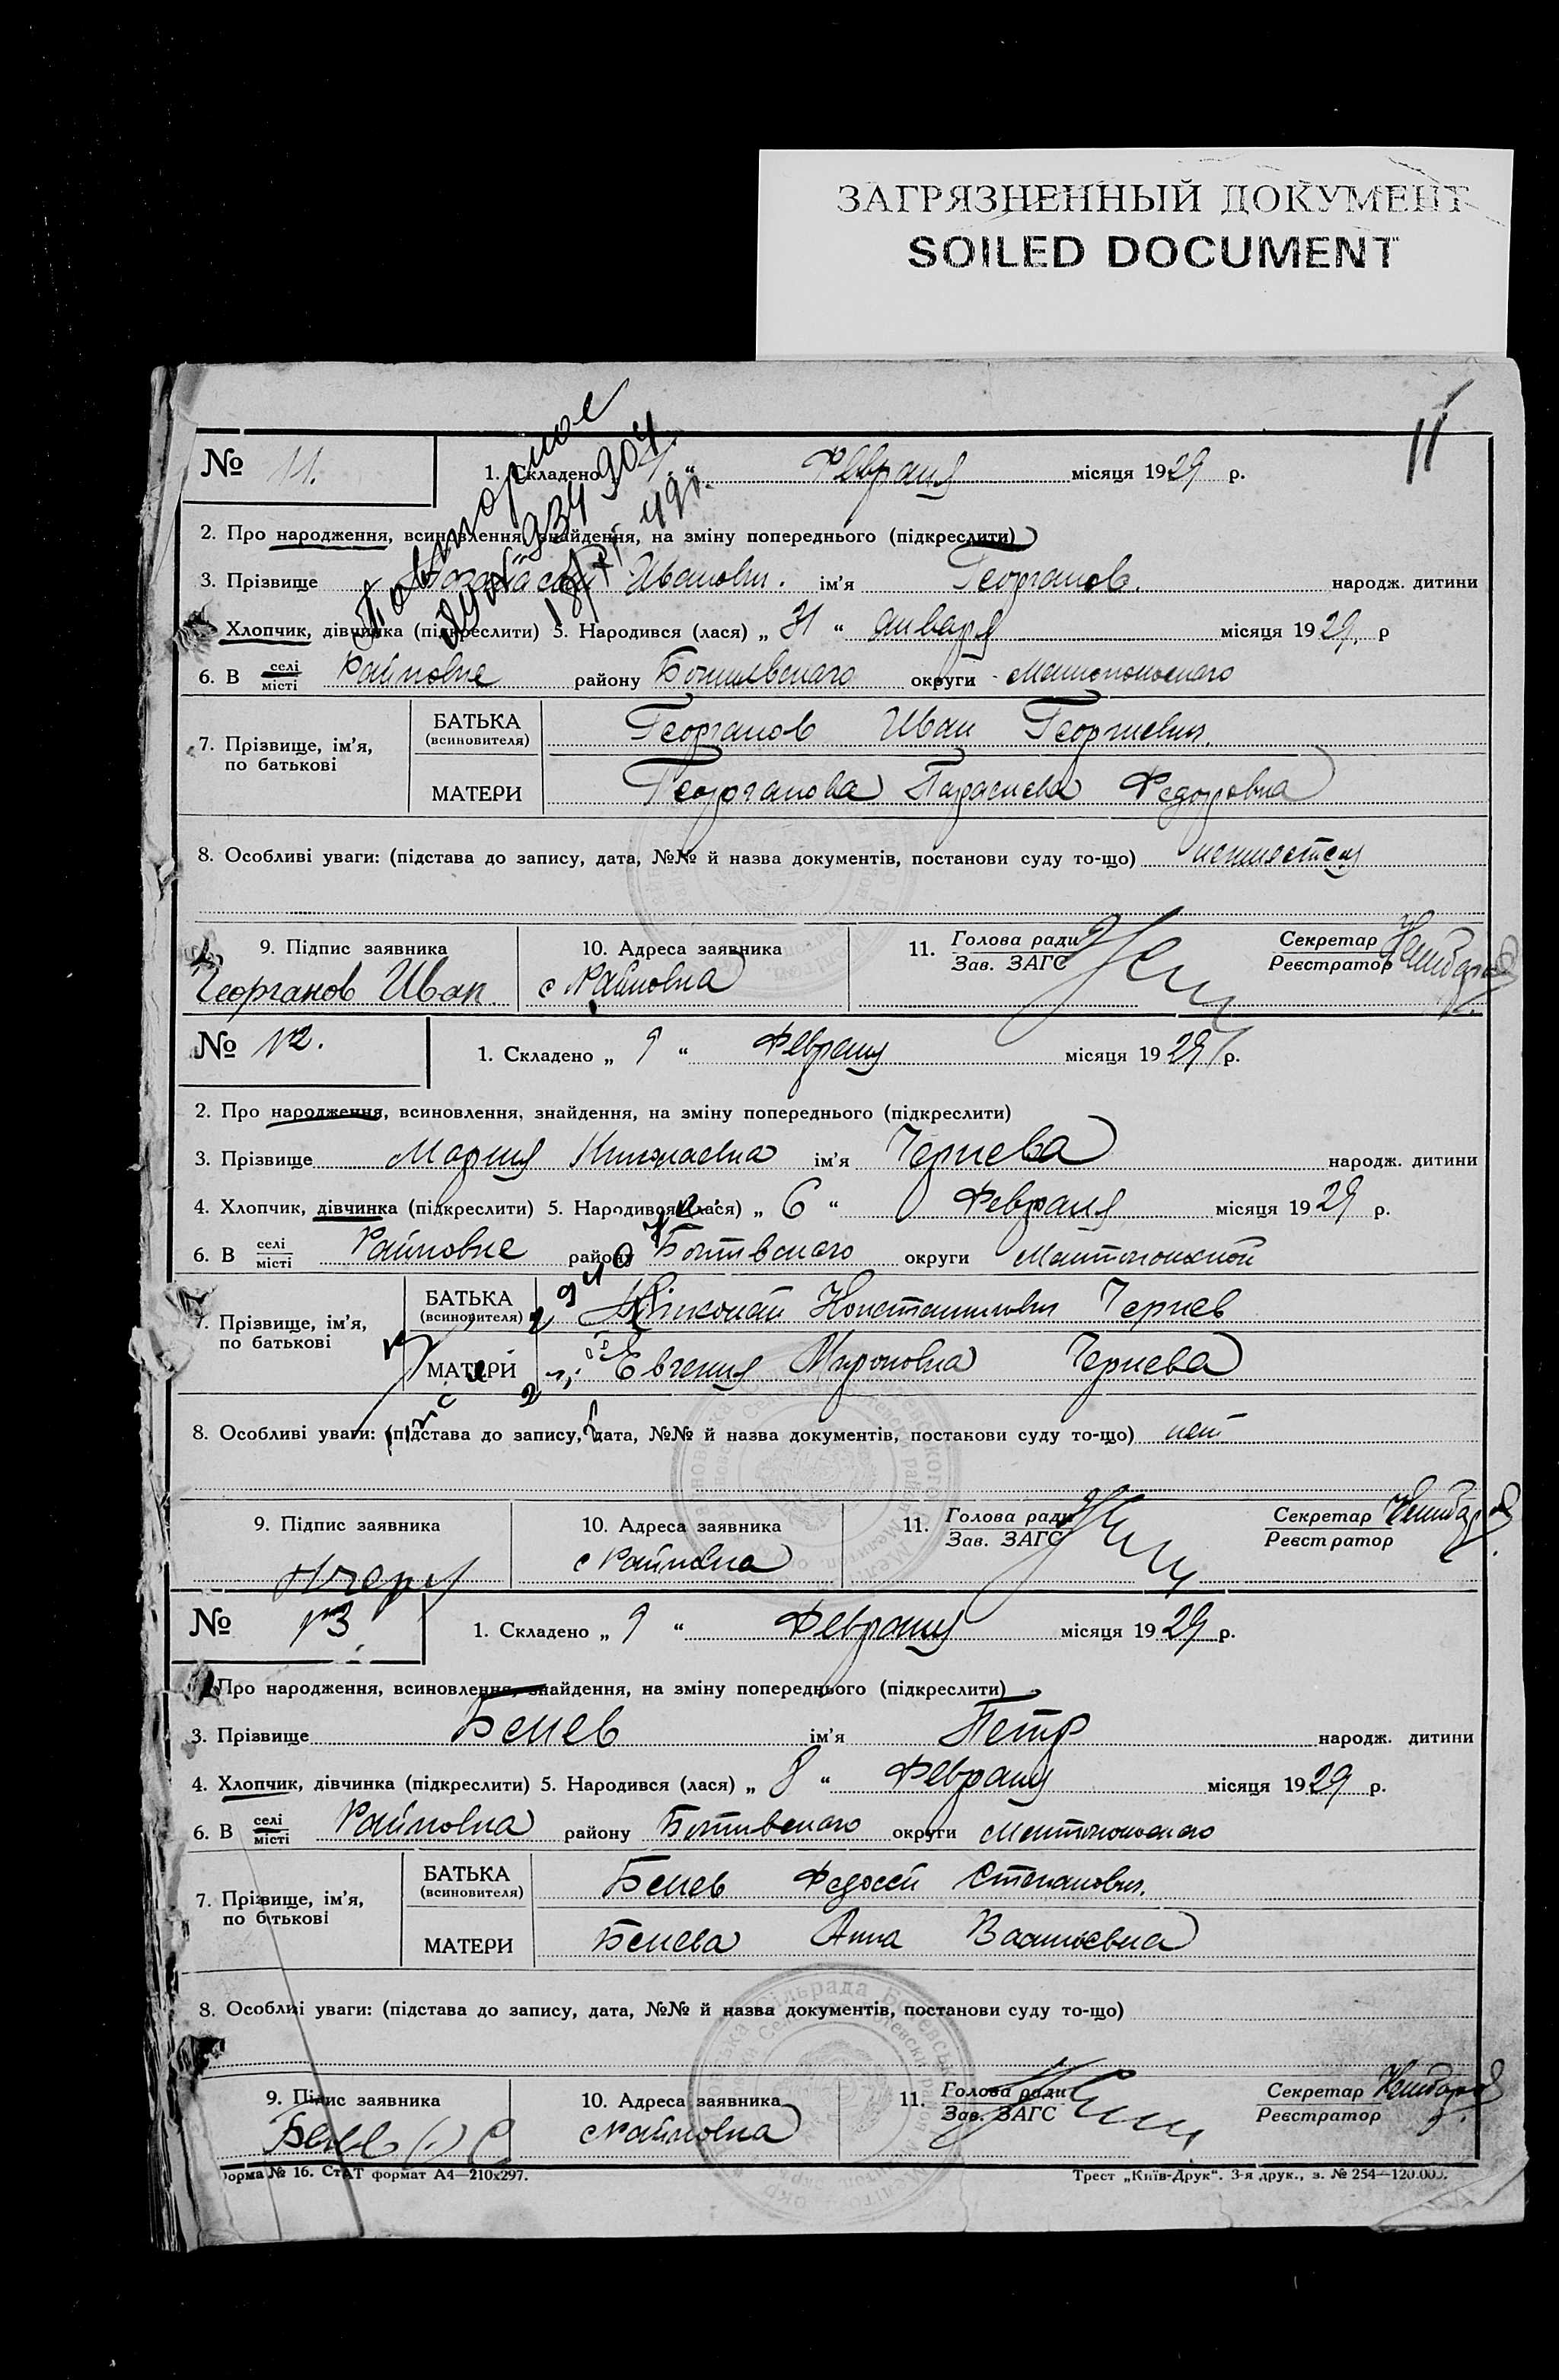 ЗАГРЯЗНЕННЫЙ ДОКУМЕНТ
SOILED DOCUMENT
11
№ 11.
1. Складено „ “ Февраля місяця 1929 р.
Повторное
2. Про народження, всиновлення, знайдення, на зміну попереднього (підкреслити)
3. Прізвище Иванович. ім'я Георганов. народж. дитини
4. Хлопчик, дівчинка (підкреслити) 5. Народився (лася) „ 31 “ января місяця 1929. р
6. В селі / місті Райновке району Ботиевского округи Мелитопольского
7. Прізвище, ім'я, по батькові
БАТЬКА (всиновителя) Георганов Иван Георгиевич.
МАТЕРИ Георганова Параскева Федоровна
8. Особливі уваги: (підстава до запису, дата, №№ й назва документів, постанови суду то-що)
9. Підпис заявника
Георганов Иван.
10. Адреса заявника
с Райновка
11. Голова ради / Зав. ЗАГС
Секретар / Реєстратор
№ 12.
1. Складено „ 9 “ Февраля місяця 1929 р.
2. Про народження, всиновлення, знайдення, на зміну попереднього (підкреслити)
3. Прізвище Мария Николаевна ім'я Чернева народж. дитини
4. Хлопчик, дівчинка (підкреслити) 5. Народився (лася) „ 6 “ Февраля місяця 1929 р.
6. В селі / місті Райновке району Ботиевского округи Мелитопольской
7. Прізвище, ім'я, по батькові
БАТЬКА (всиновителя) Николай Константинович Чернев
МАТЕРИ Евгения Мироновна Чернева
8. Особливі уваги: (підстава до запису, дата, №№ й назва документів, постанови суду то-що) нет
9. Підпис заявника
10. Адреса заявника
с Райновка
11. Голова ради / Зав. ЗАГС
Секретар / Реєстратор
№ 13
1. Складено „ 9 “ Февраля місяця 1929 р.
2. Про народження, всиновлення, знайдення, на зміну попереднього (підкреслити)
3. Прізвище Бенев ім'я Петр народж. дитини
4. Хлопчик, дівчинка (підкреслити) 5. Народився (лася) „ 8 “ Февраля місяця 1929 р.
6. В селі / місті Райновка району Ботиевского округи Мелитопольского
7. Прізвище, ім'я, по батькові
БАТЬКА (всиновителя) Бенев Федосей Степанович.
МАТЕРИ Бенева Анна Васильевна
8. Особливі уваги: (підстава до запису, дата, №№ й назва документів, постанови суду то-що)
9. Підпис заявника
10. Адреса заявника
с Райновка
11. Голова ради / Зав. ЗАГС
Секретар / Реєстратор
форма № 16. СтАТ формат А4—210х297.
Трест „Київ-Друк“. 3-я друк., з. № 254—120.000.